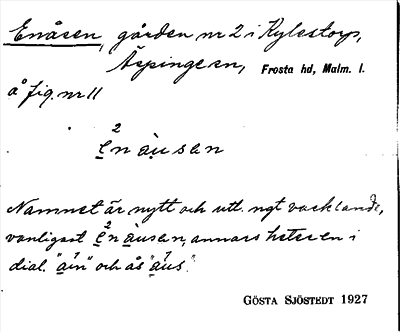 Enåsen, gården nr 2 i Kylestorp,
Äspinge sn, Frosta hd, Malm. l.
å fig. nr 11
2
e̱nàusen
Namnet är nytt och utt. ngt vacklande,
vanligast e̱nàusen, annars heter en i
dial. "áin" och ås "áus".
GÖSTA SJÖSTEDT 1927